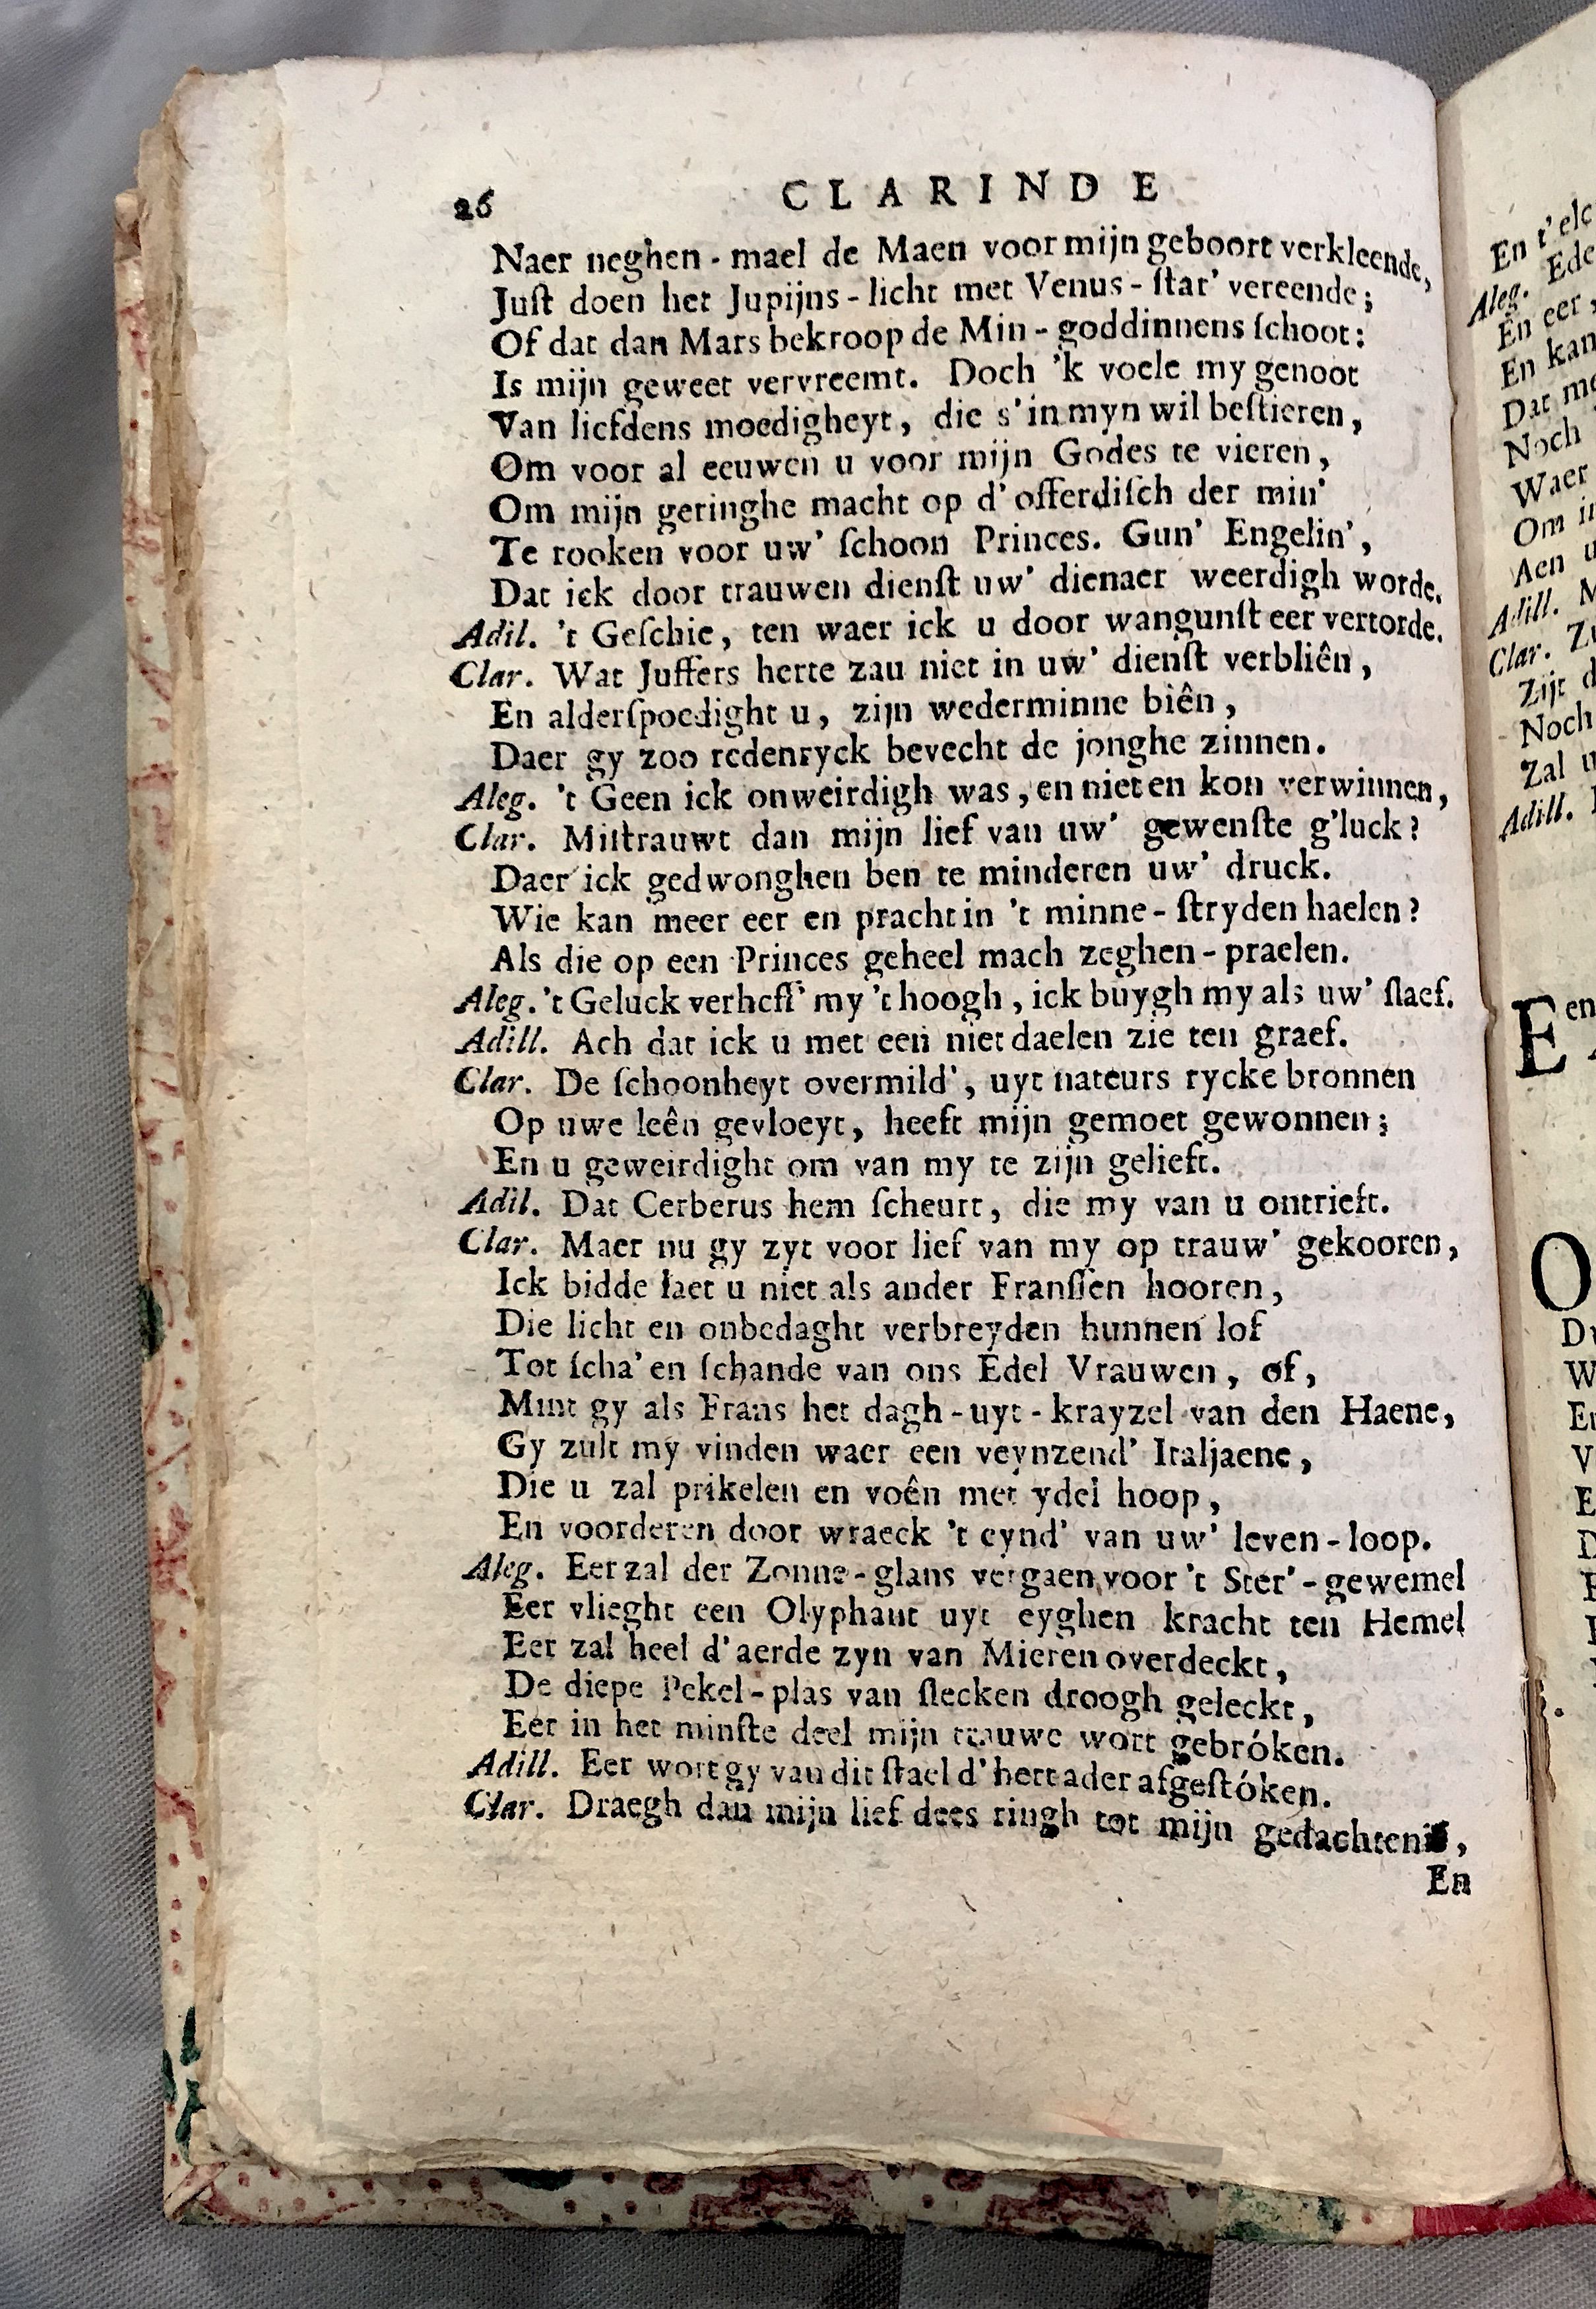 26 CLARINDE
Naer neghen-mael de Maen voor mijn geboort verkleende,
Juſt doen het Jupijns-licht met Venus-ſtar' vereende;
Of dat dan Mars bekroop de Min-goddinnens ſchoot:
Is mijn geweet vervreemt. Doch 'k voele my genoot
Van liefdens moedigheyt, die s'in myn wil beſtieren,
Om voor al eeuwen u voor mijn Godes te vieren,
Om mijn geringhe macht op d'offerdiſch der min'
Te rooken voor uw' ſchoon Princes. Gun' Engelin',
Dat ick door trauwen dienſt uw' dienaer weerdigh worde.
Adil. 't Geſchie, ten waer ick u door wangunſt eer vertorde.
Clar. Wat Juffers herte zau niet in uw' dienſt verbliên,
En alderſpoedight u, zijn wederminne biên,
Daer gy zoo redenryck bevecht de jonghe zinnen.
Aleg. 't Geen ick onweirdigh was, en niet en kon verwinnen,
Clar. Miſtrauwt dan mijn lief van uw' gewenſte g'luck?
Daer ick gedwonghen ben te minderen uw' druck.
Wie kan meer eer en pracht in 't minne-ſtryden haelen?
Als die op een Princes geheel mach zeghen-praelen.
Aleg. 't Geluck verheff' my 't hoogh, ick buygh my als uw' ſlaef.
Adill. Ach dat ick u met een niet daelen zie ten graef.
Clar. De ſchoonheyt overmild', uyt nateurs rycke bronnen
Op uwe leên gevloeyt, heeft mijn gemoet gewonnen;
En u geweirdight om van my te zijn gelieft.
Adil. Dat Cerberus hem ſcheurt, die my van u ontrieft.
Clar. Maer nu gy zyt voor lief van my op trauw' gekooren,
Ick bidde laet u niet als ander Franſſen hooren,
Die licht en onbedaght verbreyden hunnen lof
Tot ſcha' en ſchande van ons Edel Vrauwen, of,
Mint gy als Frans het dagh-uyt-krayzel van den Haene,
Gy zult my vinden waer een veynzend' Italjaene,
Die u zal prikelen en voên met ydel hoop,
En voorderen door wraeck 't eynd' van uw' leven-loop.
Aleg. Eer zal der Zonne-glans vergaen voor 't Ster'-gewemel
Eer vlieght een Olyphant uyt eyghen kracht ten Hemel
Eer zal heel d'aerde zyn van Mieren overdeckt,
De diepe Pekel-plas van ſlecken droogh geleckt,
Eer in het minſte deel mijn trauwe wort gebróken.
Adill. Eer wort gy van dit ſtael d'hert ader afgeſtóken.
Clar. Draegh dan mijn lief dees ringh tot mijn gedachtenis,
En
En t'elc
Ede
Aleg.
En eer,
En kan
Dat me
Noch
Waer
Om i
Aen u
Adill. M
Clar. Z
Zijt d
Noch
Zal u
Adill.
Een
O
D
W
E
V
E
D